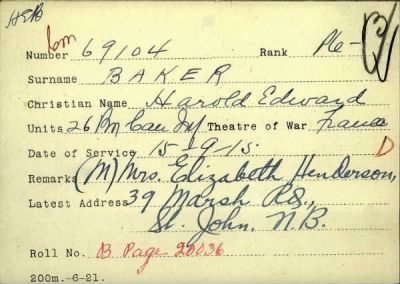 HEB
6m
Number 69104 Rank Pte- B
Surname BAKER
Christian Name Harold Edward
Units 26 Bn Can Inf Theatre of War France
Date of Service 15-9-15 D
Remarks (M) Mrs. Elizabeth Henderson,
Latest Address 39 Marsh Rd.,
St. John. N.B.
Roll No. B Page 20036
200m.-6-21.